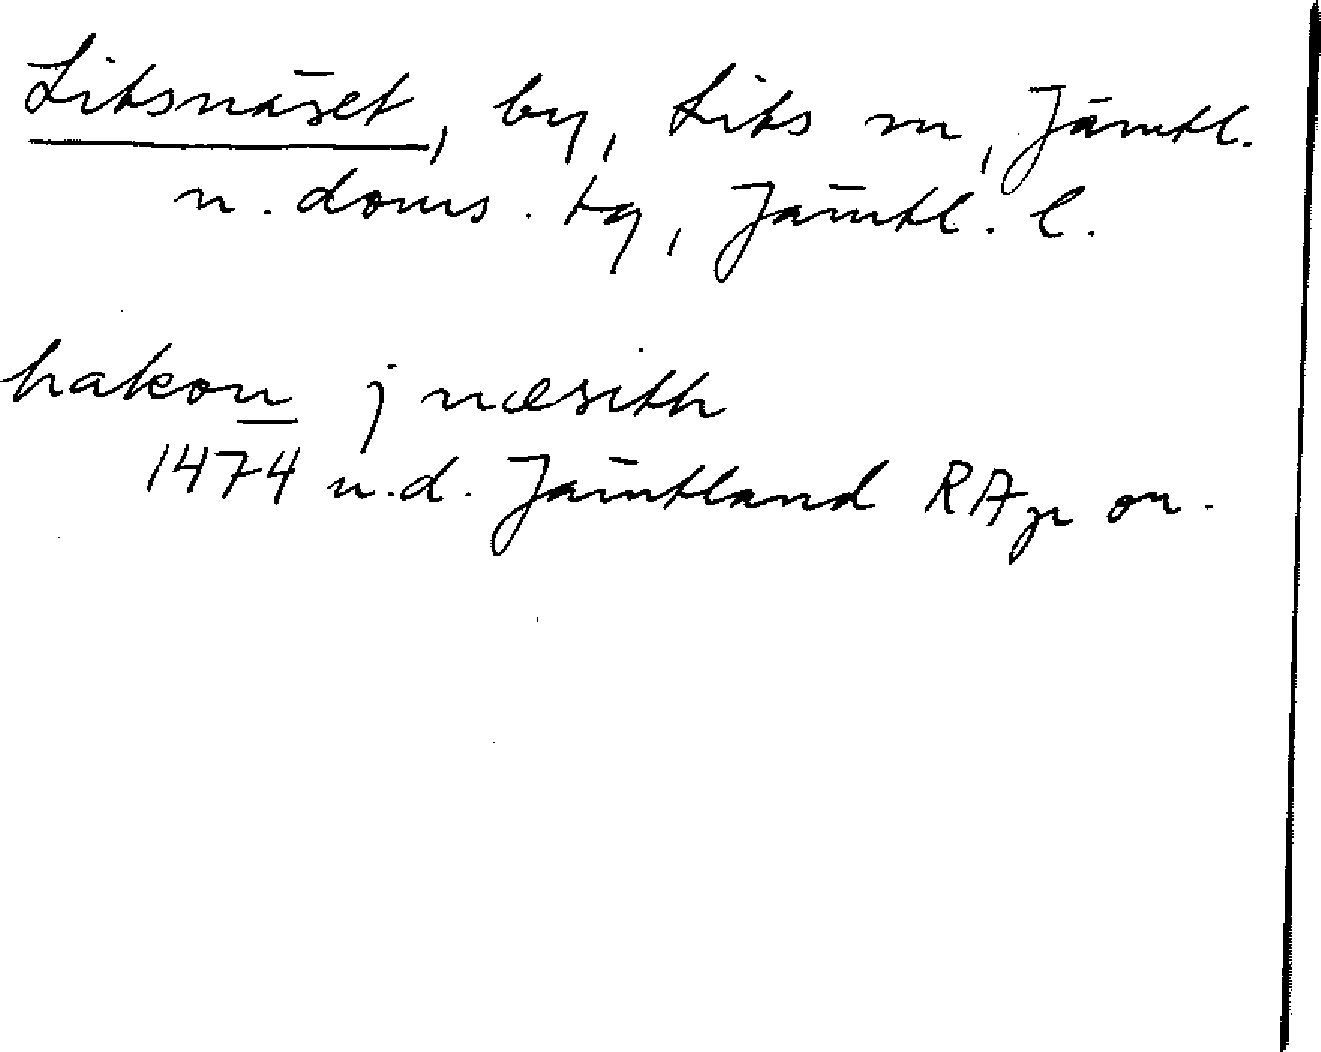 Litsnäset, by, Lits sn, Jämtl.
n. doms. tg, Jämtl. l.
hakon j næsith
1474 u.d. Jämtland RAp or.